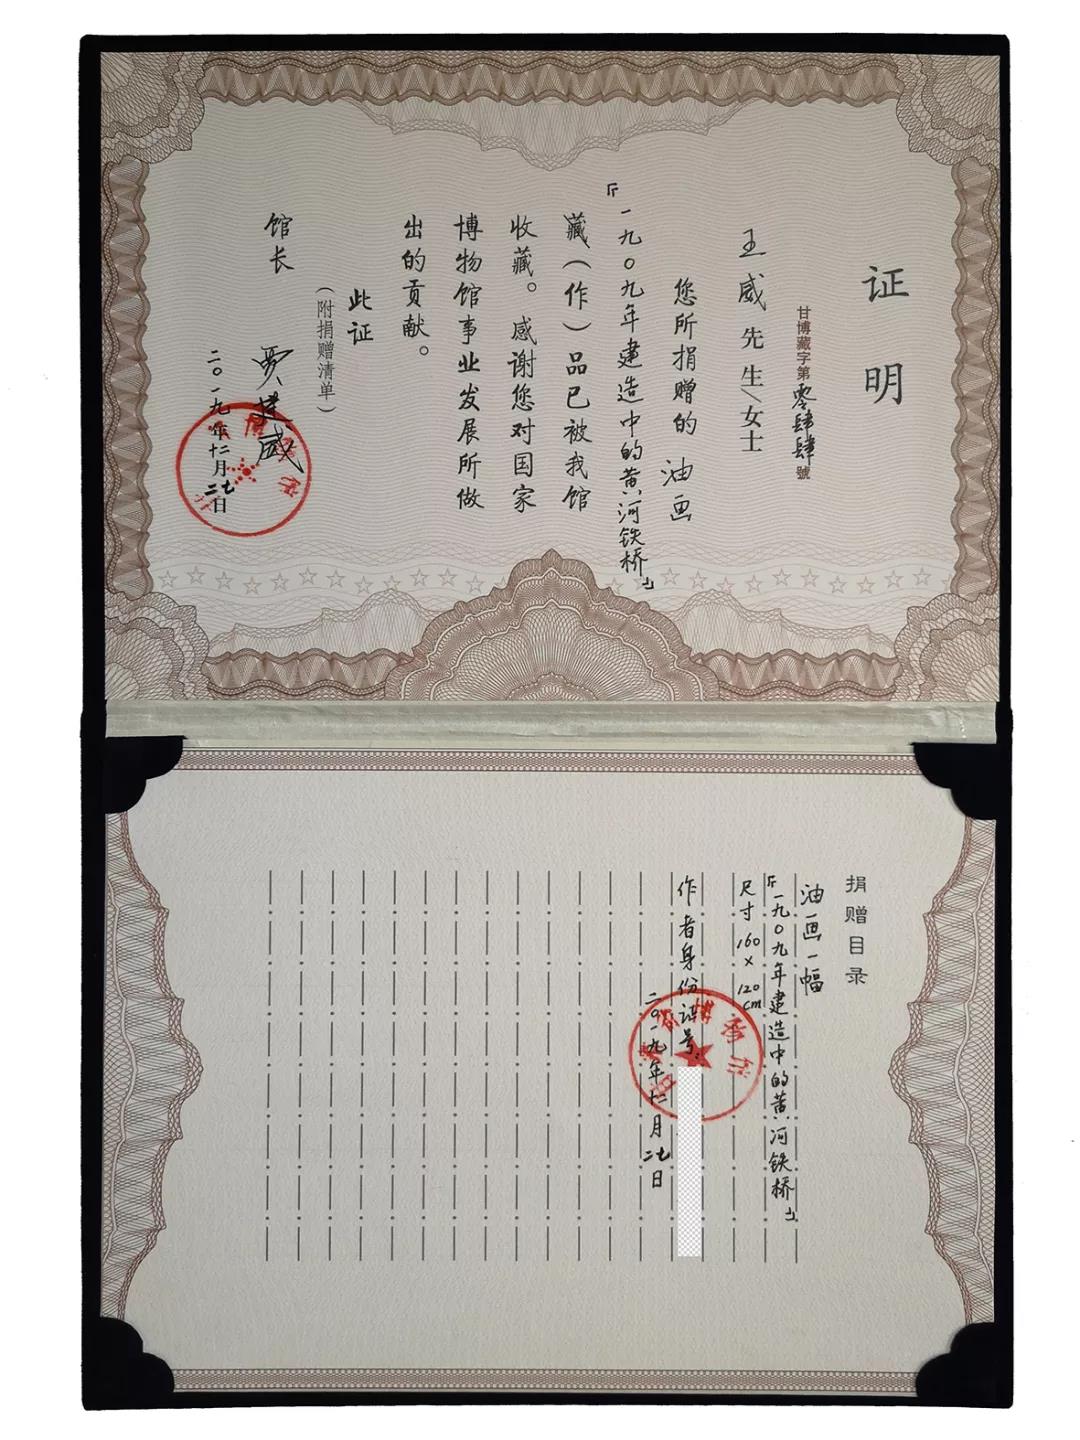 证明
甘博藏字第零肆肆號
王威先生/女士
您所捐赠的油画
『一九〇九年建造中的黄河铁桥』
藏（作）品已被我馆
收藏。感谢您对国家
博物馆事业发展所做
出的贡献。
此证
（附捐赠清单）
馆长 贾建威
二〇一九年十二月二七日
捐赠目录
油画一幅
『一九〇九年建造中的黄河铁桥』
尺寸160×120cm
作者身份证号:
二〇一九年十二月二七日